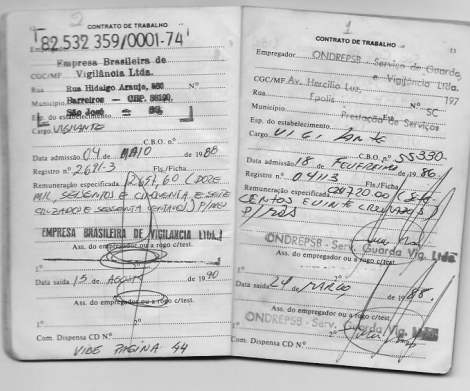 2
CONTRATO DE TRABALHO
82.532 359/0001-74
Empresa Brasileira de
CGC/MF Vigilância Ltda.
Rua Rua Hidalgo Araujo, Nº
Município Barreiros - CEP.
São José
Esp. do estabelecimento
Cargo VIGILANTE
C.B.O. nº
Data admissão 04 de MAIO de 1988
Registro nº 2691-3 Fls./Ficha
Remuneração especificada
MIL,
EMPRESA BRASILEIRA DE VIGILANCIA Ltda.
Ass. do empregador ou a rogo c/test.
1º
Data saída 15 de AGOSTO de 1990
Ass. do empregador ou a rogo c/test.
1º
Com. Dispensa CD Nº
VIDE PAGINA 44
1
CONTRATO DE TRABALHO
13
Empregador ONDREPSB - Serviço de Guarda
e Vigilância Ltda.
CGC/MF Av. Hercílio Luz,
197
Rua Nº
Fpolis SC
Município
Prestação de Serviços
Esp. do estabelecimento
Cargo VIGILANTE
C.B.O. nº 55330
Data admissão 18 de FEVEREIRO de 1986
Registro nº 0413 Fls./Ficha
Remuneração especificada
CENTOS E VINTE
P/MÊS
ONDREPSB - Serv. Guarda Vig. Ltda
Ass. do empregador ou a rogo c/test.
1º 2º
Data saída 24 de MARÇO, de 1988.
Ass. do empregador ou a rogo c/test.
ONDREPSB - Serv. Guarda Vig. Ltda
1º 2º
Com. Dispensa CD Nº